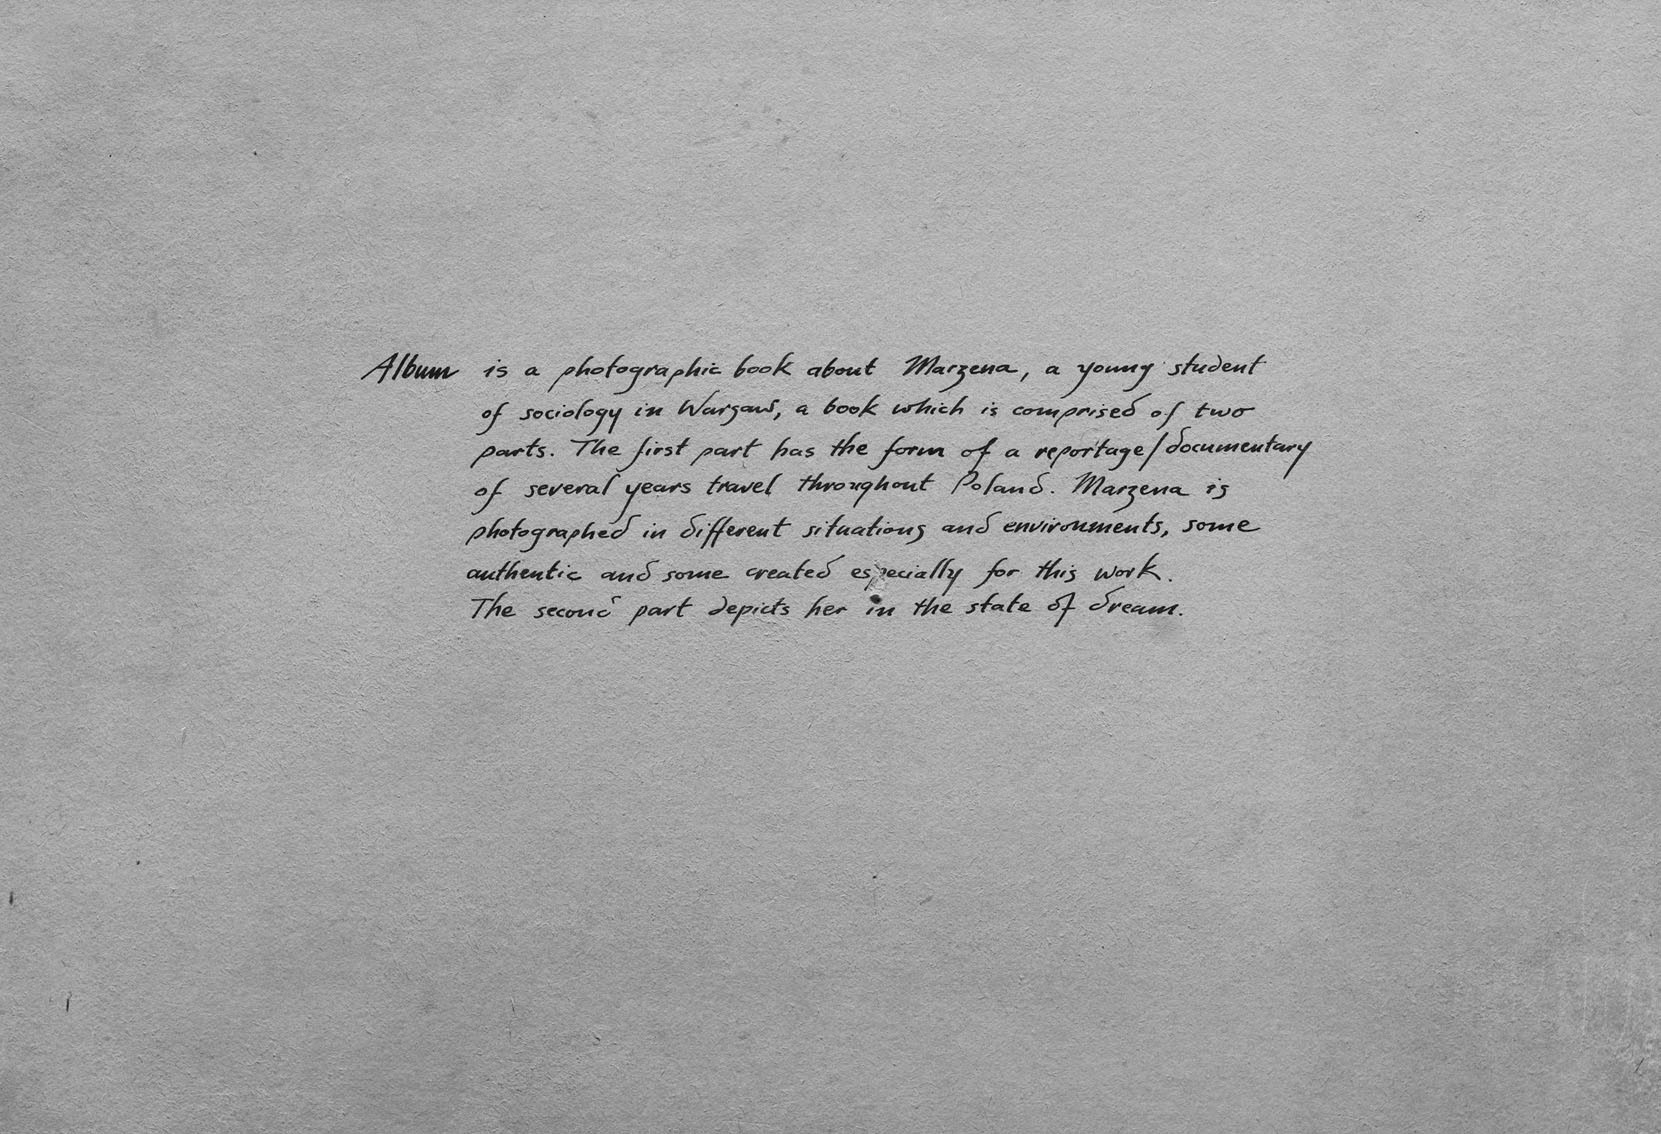 Album is a photographic book about Marzena, a young student
of sociology in Warsaw, a book which is comprised of two
parts. The first part has the form of a reportage/documentary
of several years travel throughout Poland. Marzena is
photographed in different situations and environments, some
authentic and some created especially for this work.
The second part depicts her in the state of dream.